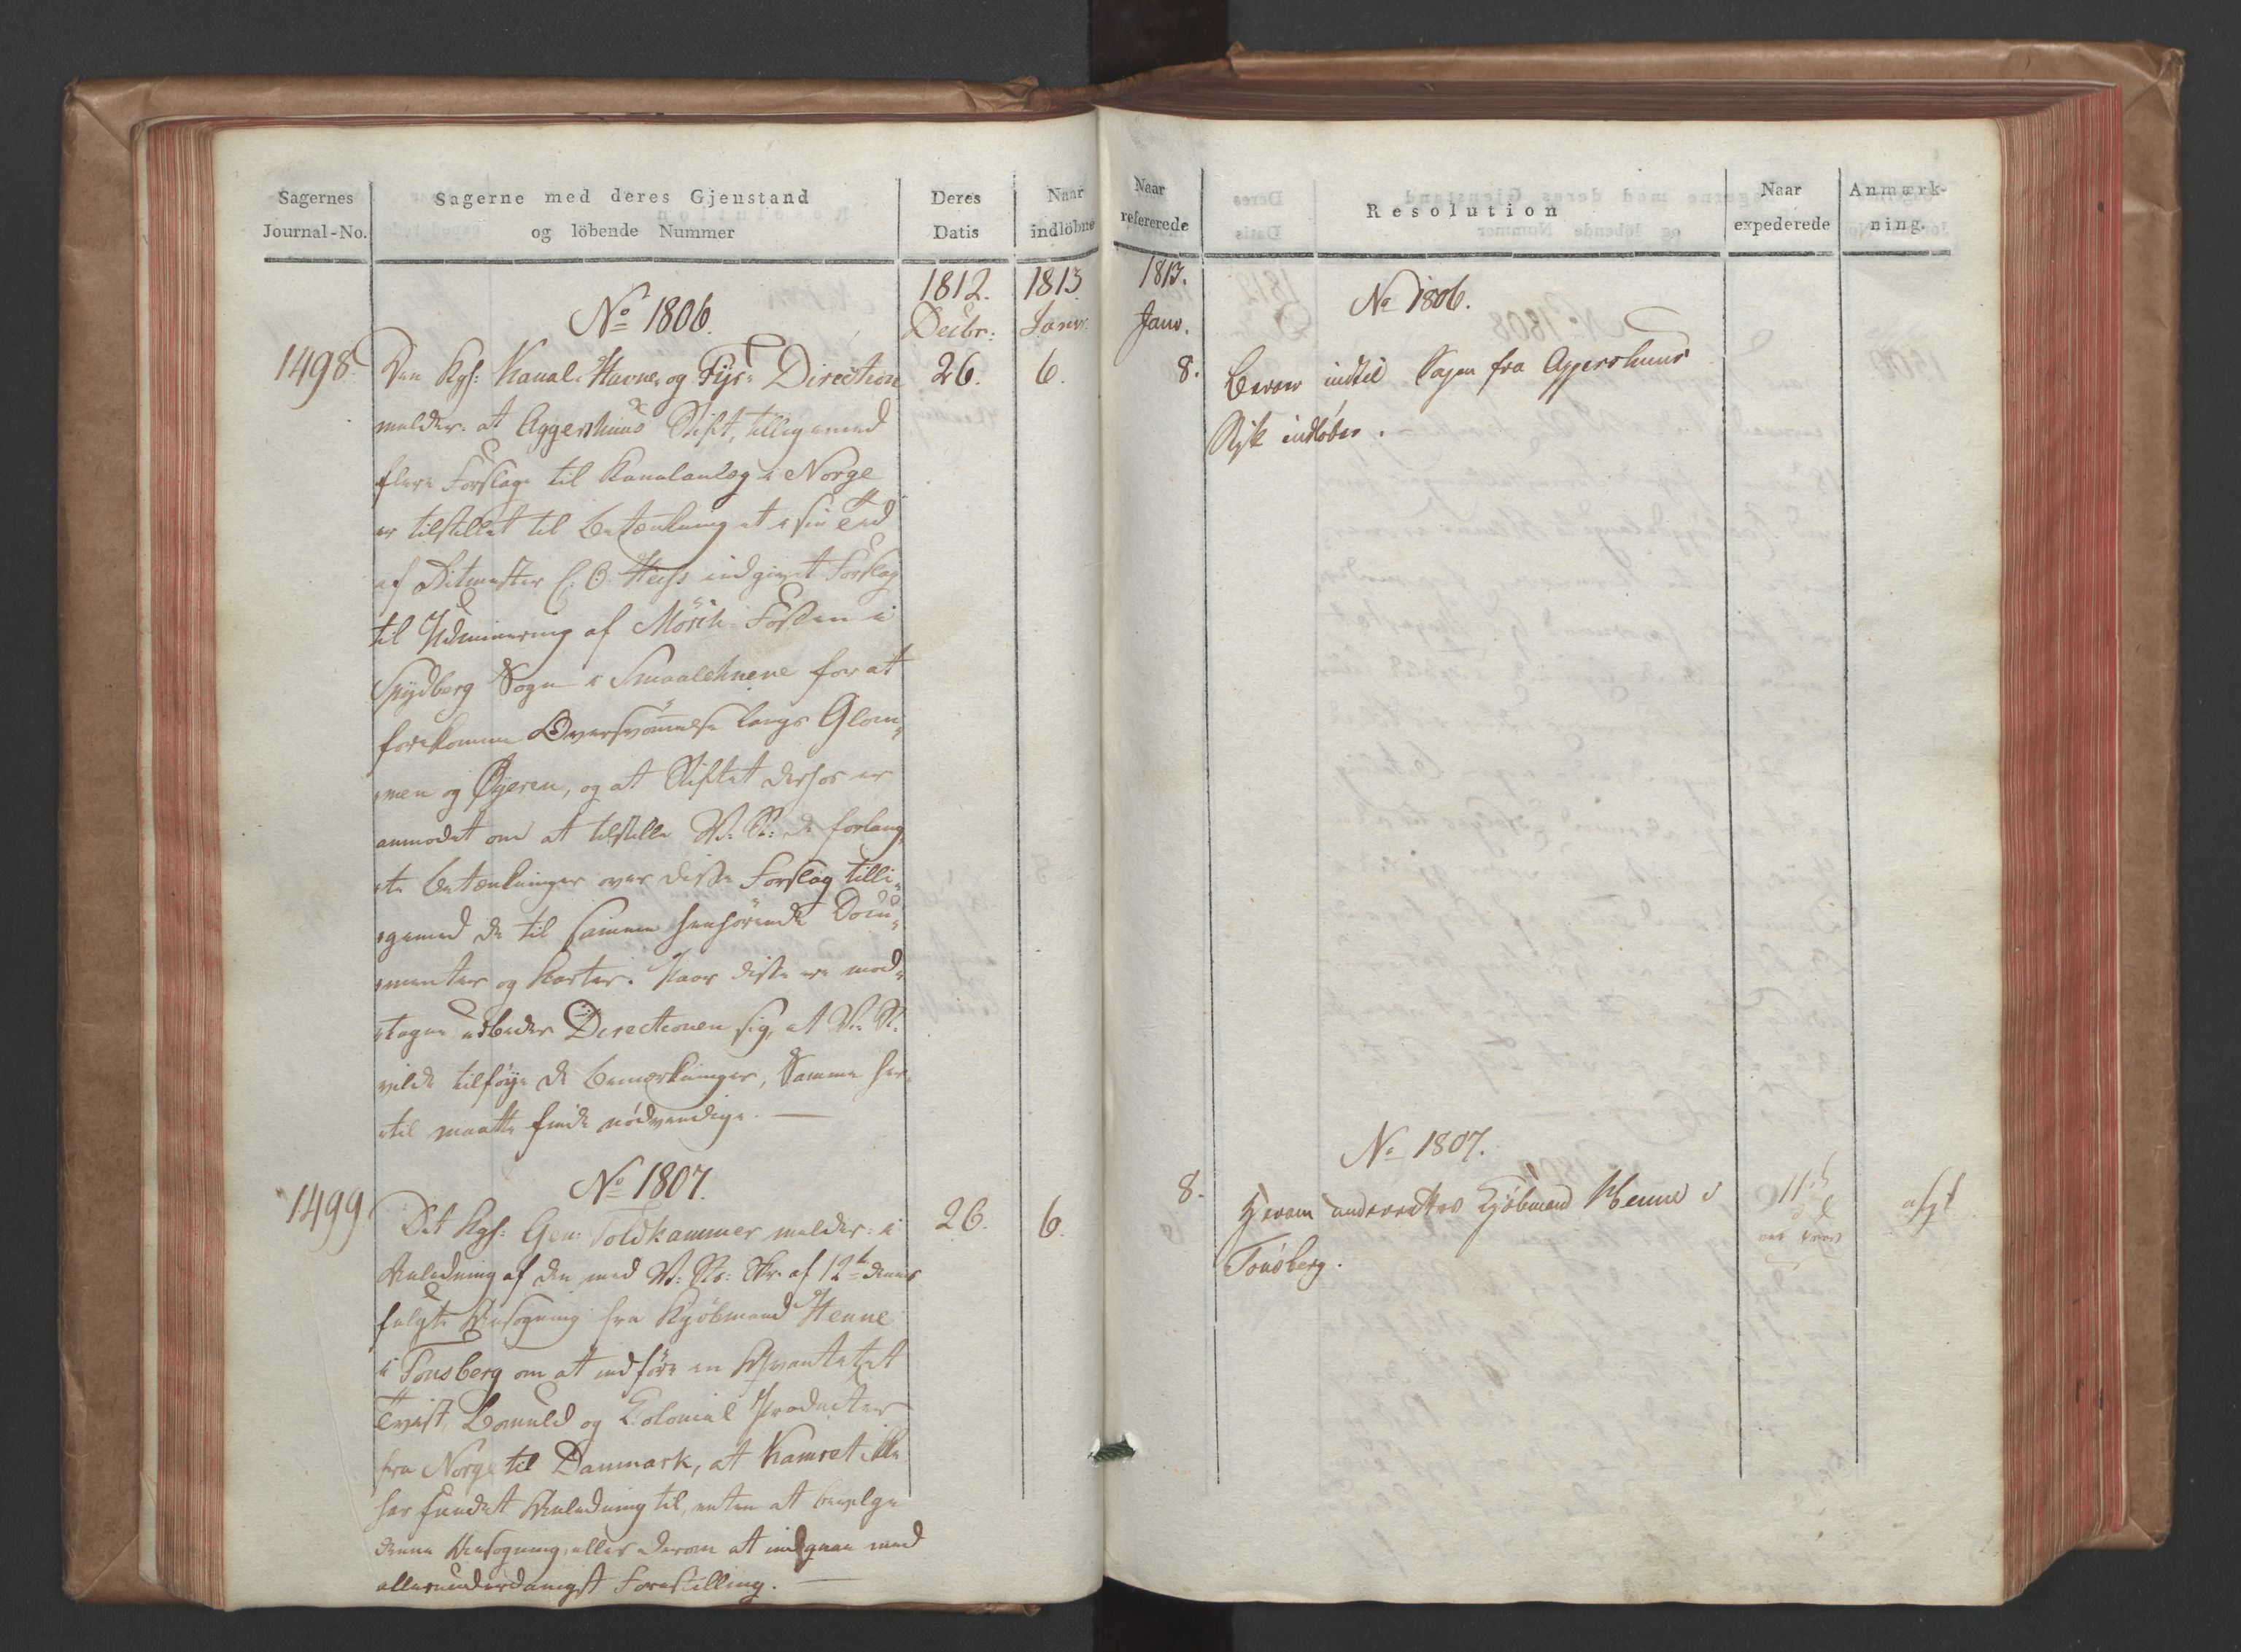 Sagernes
Journal-No.
Sagerne med deres Gjenstand
og löbende Nummer
Deres
Datis
Naar
indlöbne
1812.
Decbr:
1813
Janv:
No 1806.
1498.
Den Kgl: Kanal- Havne- og Fyr- Direction
26.
6.
melder: at Aggershuus Stift, tilligemed
flere Forslage til Kanalanlæg i Norge
er tilstillet til Betænkning et i sin Tid
af Ritmester C. O. indgivet Forslag
til Udminering af Mörch-Fossen i
Spydberg Sogn i Smaalehnene for at
forekomme Oversvömmelse langs Glom-
men og Øyeren, og at Stiftet derhos er
anmodet om at tilstille V: R: de forlang-
te Betænkninger over disse Forslag tilli-
gemed de til samme henhörende Docu-
menter og Karter. Naar disse ere mod-
tagne udbeder Directionen sig, at V: R:
vilde tilföye de Bemærkninger, Samme her-
til maatte finde nödvendige. —
No 1807.
1499.
Det Kgl: Gen: Toldkammer melder: i
26.
6.
Anledning af den med V: Rs: Skr. af 12te dennes
fulgte Ansøgning fra Kjöbmand Henne
i Tonsberg om at udføre en Qvantitet
Twist, Bomuld og Colonial Producter
fra Norge til Danmark, at Kamret ikke
har fundet Anledning til, enten at bevilge
denne Ansøgning, eller derom at indgaae med
allerunderdanigst Forestilling. —
Naar
refererede
Resolution
Naar
expederede
Anmærk-
ning.
1813.
Janv.
No 1806.
8.
Beroer indtil Sagen fra Aggershuus
Stift indløber.
No 1807.
8.
Herom underrettes Kjöbmand Henne i
11te
Tönsberg.